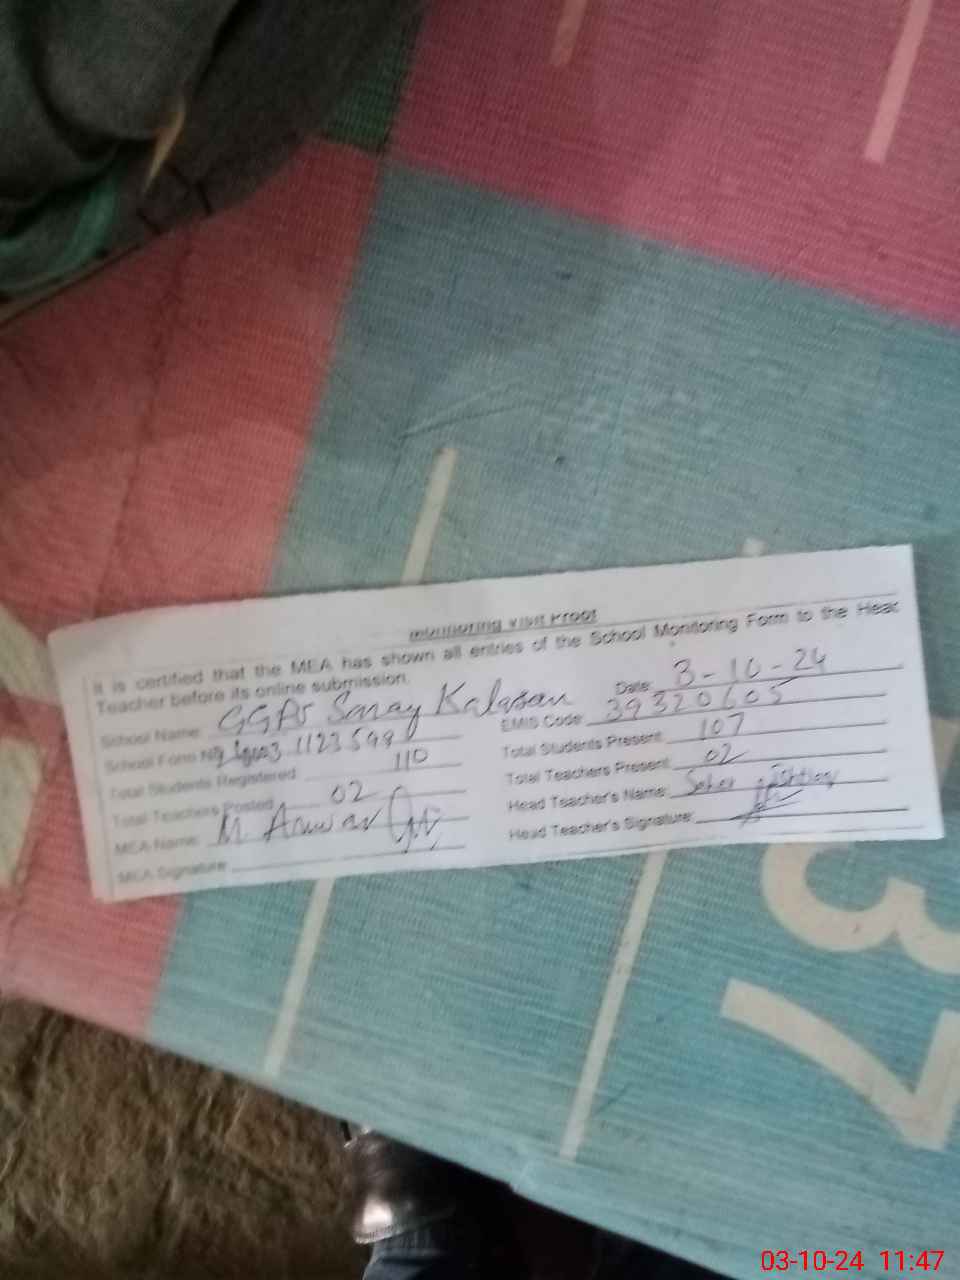 Monitoring Visit Proof
It is certified that the MEA has shown all entries of the School Monitoring Form to the Head
Teacher before its online submission.
School Name: GGPS Saray Kalasan Date: 3-10-24
School Form No 1123599 EMIS Code: 39320605
Total Students Registered: 110 Total Students Present: 107
Total Teachers Posted: 02 Total Teachers Present: 02
MEA Name: M. Anwar Head Teacher's Name: Seher
MEA Signature: Head Teacher's Signature:
37
03-10-24 11:47